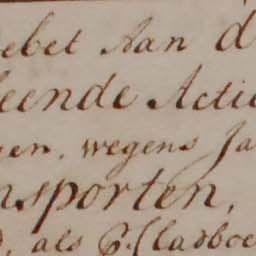 ebet Aan d
eende Actie
en, wegens Ja
nsporten,
, als P. Cladboe